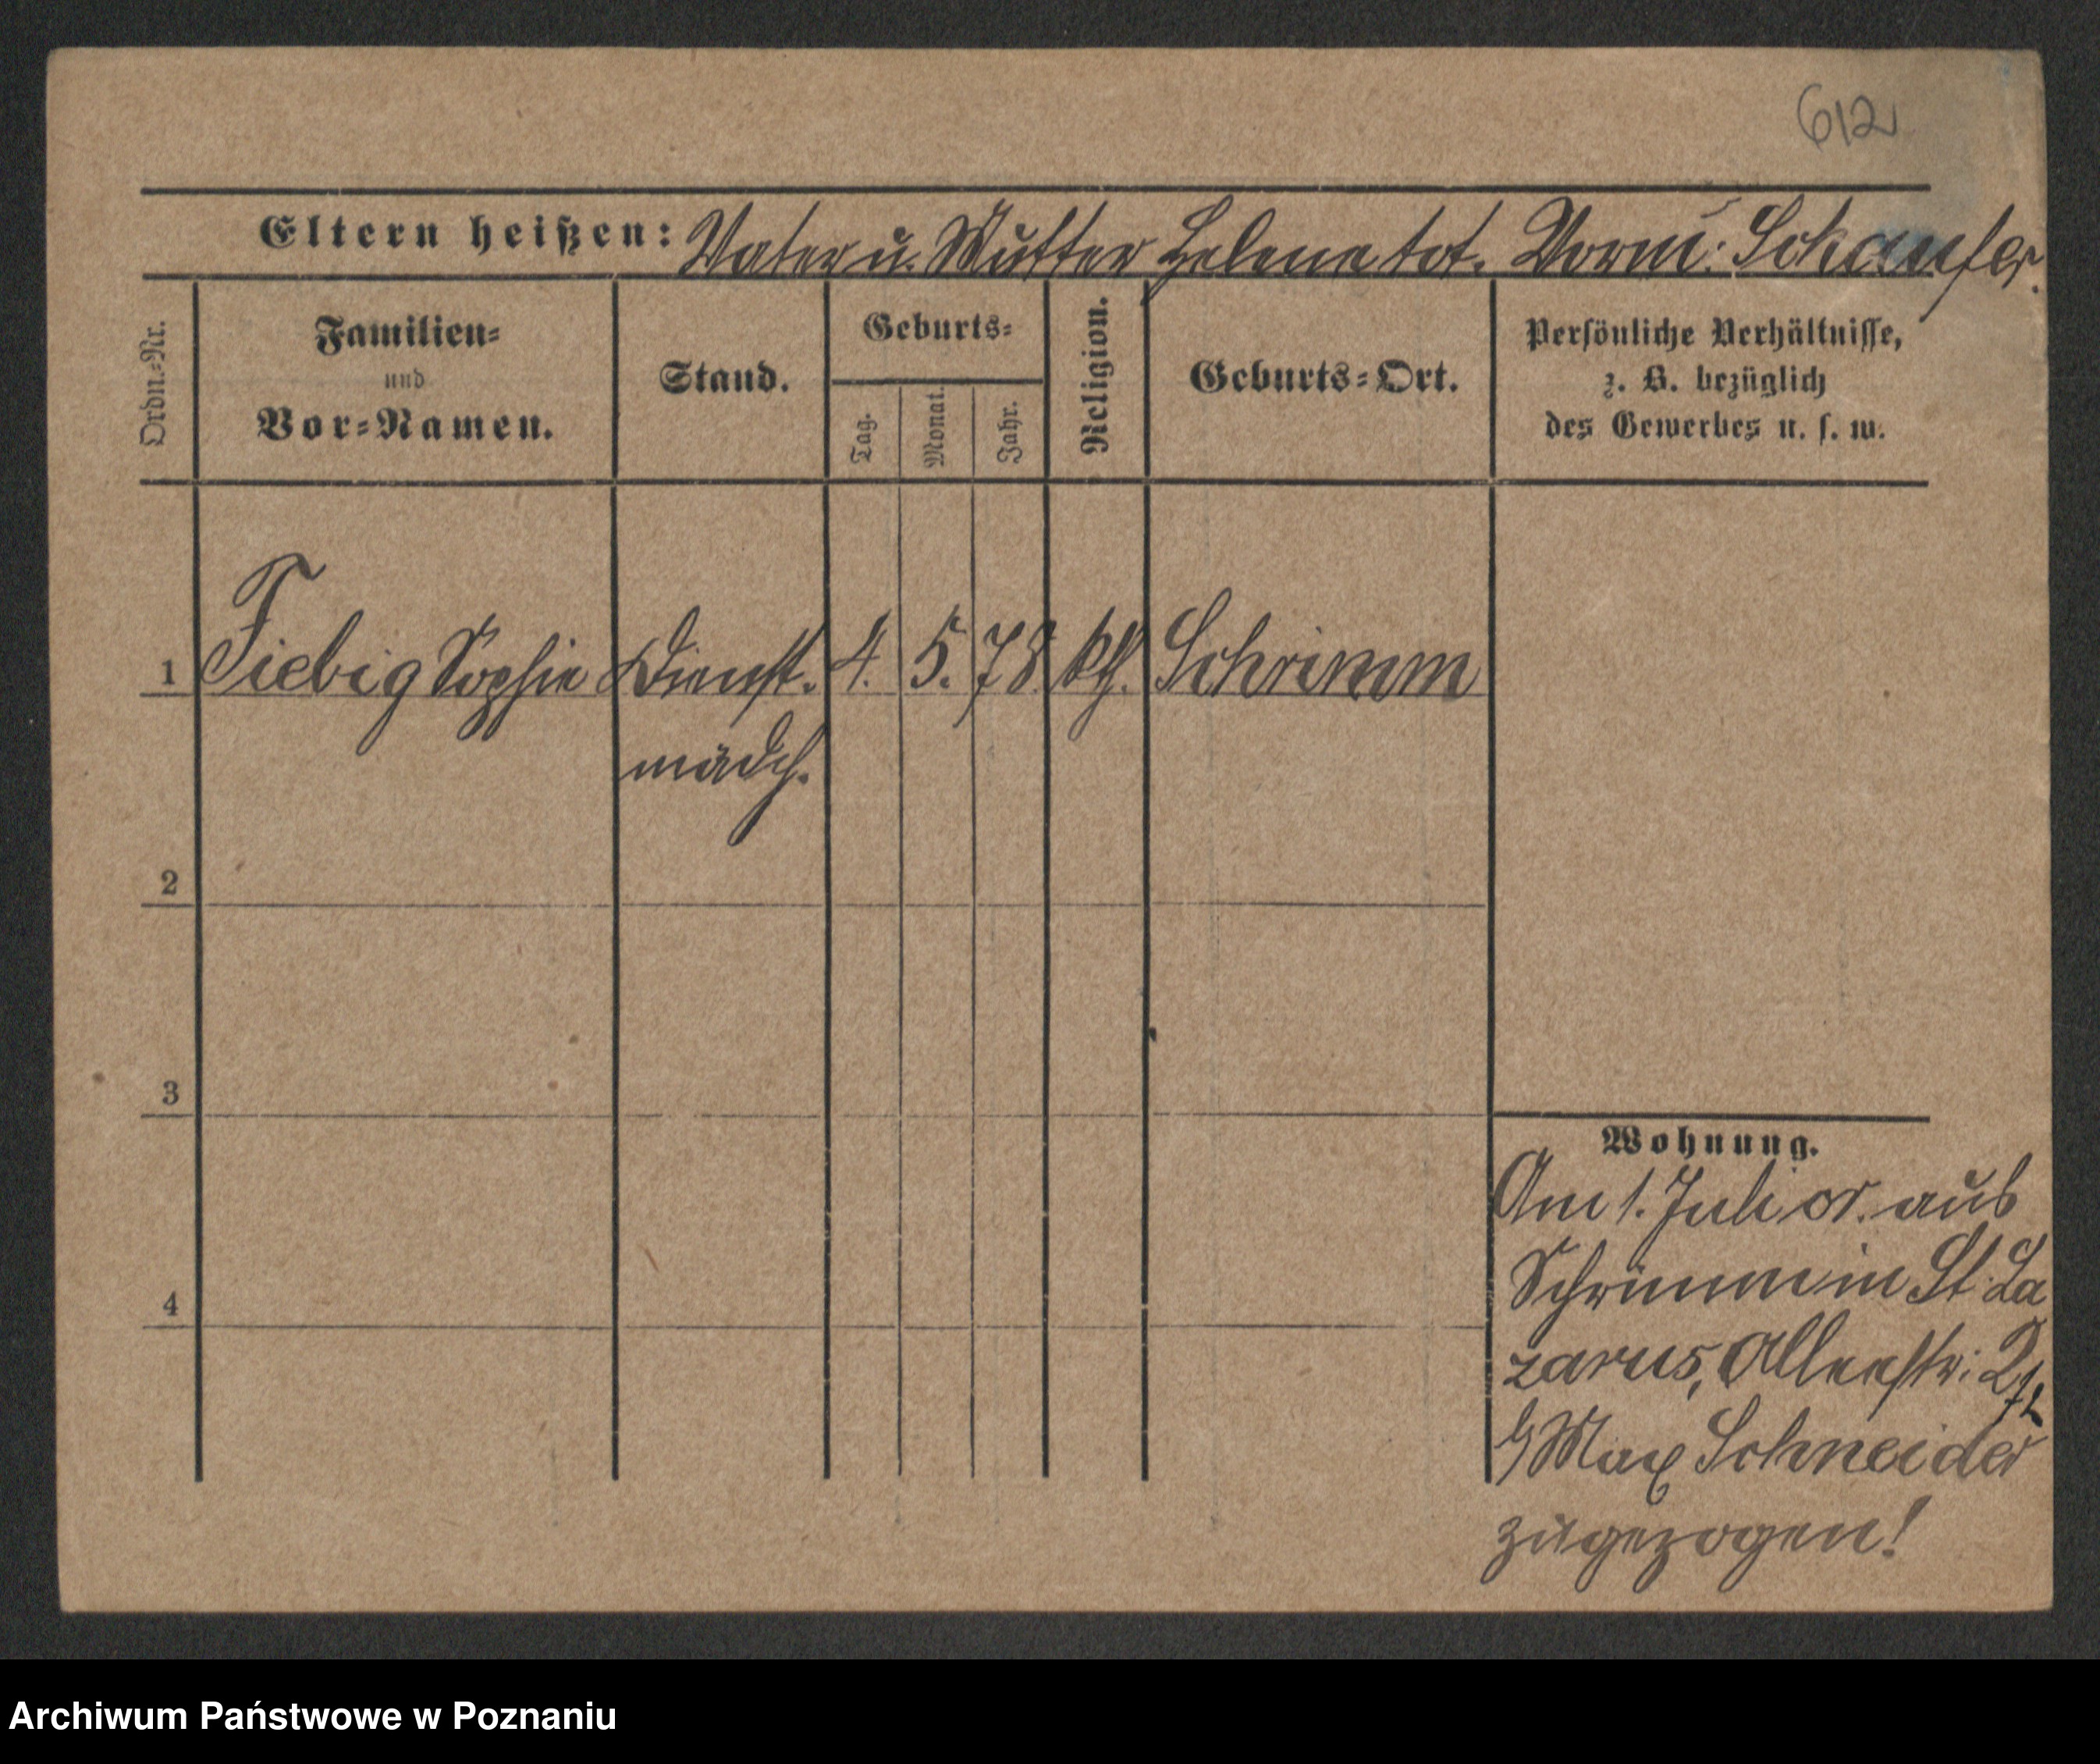 612
Eltern heißen: Vater u. Mutter Helene tot. Vorm: Schaufer.
Ordn.-Nr.
Familien-
und
Vor-Namen.
Stand.
Geburts-
Tag.
Monat.
Jahr.
Religion.
Geburts-Ort.
Persönliche Verhältnisse,
z. B. bezüglich
des Gewerbes u. s. w.
1 Fiebig Sophie Dienst. 4. 5. 78. kth. Schrimm
mädch.
2
3
4
Wohnung.
Am 1. Juli cr. aus
Schrimm in St. La
zarus, Alleestr:
b/ Max Schneider
zugezogen!
Archiwum Państwowe w Poznaniu